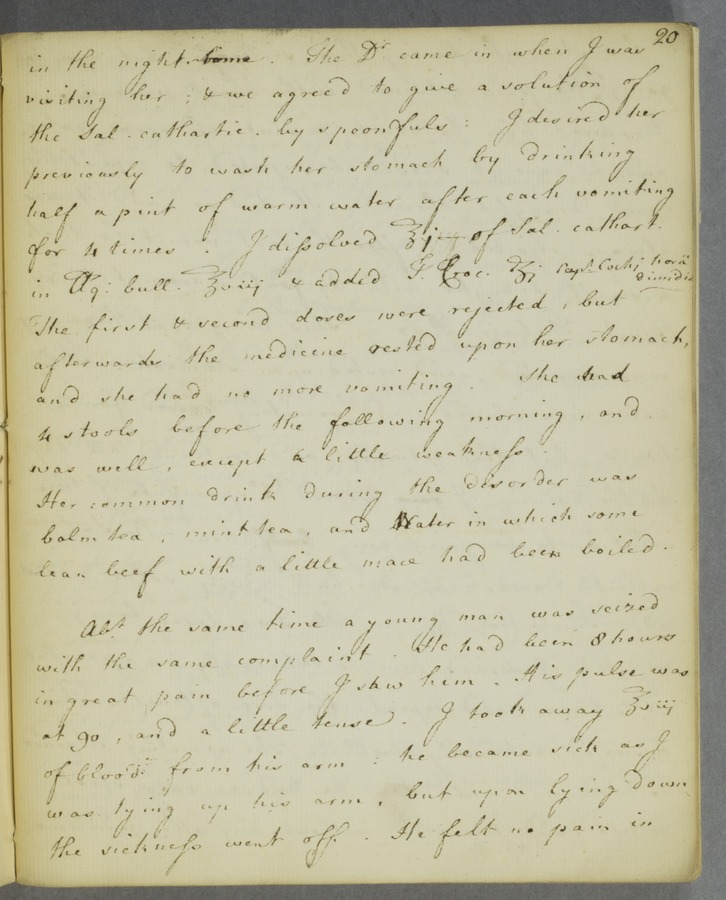 20
in the night home. The Dr. came in when I was
visiting her; & we agreed to give a solution of
the Sal. cathartic. by spoonfuls: I desired her
previously to wash her stomach by drinking
half a pint of warm water after each vomiting
for 4 times. I dissolved ℥j of Sal. cathart.
in Aq: bull. ℥viij & added T. Croc. Cap. Cochj. horâ
dimidiâ
The first & second doses were rejected, but
afterwards the medicine rested upon her stomach,
and she had no more vomiting. She had
4 stools before the following morning, and
was well, except a little weakness.
Her common drink during the disorder was
balm tea, mint tea, and Water in which some
lean beef with a little mace had been boiled.
Abt. the same time a young man was seized
with the same complaint. He had been 8 hours
in great pain before I saw him. His pulse was
at 90, and a little tense. I took away ℥viij
of blood from his arm: he became sick as I
was tying up his arm, but upon lying down
the sickness went off. He felt no pain in